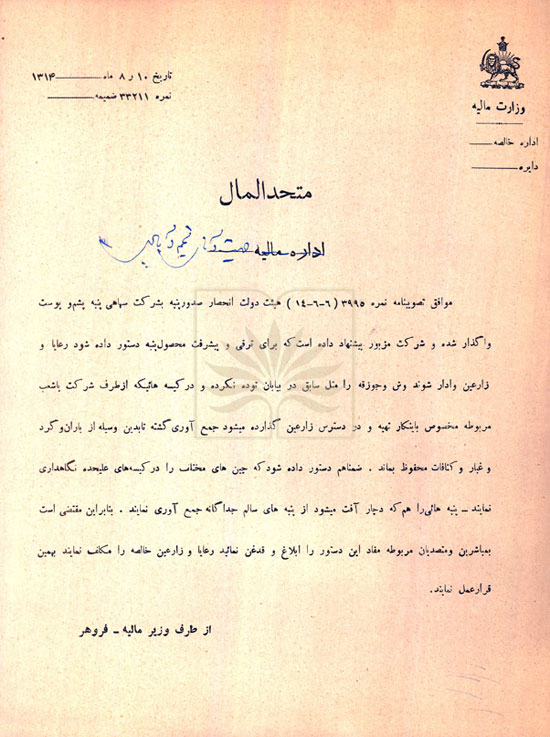 وزارت مالیه
اداره خالصه
دایره
تاریخ ۱۰ ر ۸ ماه ۱۳۱۴
نمره ۳۳۲۱۱ ضمیمه
متحدالمال
اداره مالیه
موافق تصویبنامه نمره ۳۹۹۵ (۶–۶–۱۴) هیئت دولت انحصار صدورپنبه بشرکت سهامی پنبه پشم و پوست
واگذار شده و شرکت مزبور پیشنهاد داده است که برای ترقی و پیشرفت محصول پنبه دستور داده شود رعایا و
زارعین وادار شوند وش وجوزقه را مثل سابق در بیابان توده نکرده و درکیسه هائیکه ازطرف شرکت یاشعب
مربوطه مخصوص باینکار تهیه و در دسترس زارعین گذارده میشود جمع آوری گشته تابدین وسیله از باران وگرد
و غبار و کثافات محفوظ بماند . ضمناهم دستور داده شود که چین های مختلف را در کیسه‌های علیحده نگاهداری
نمایند – پنبه هائی را هم که دچار آفت میشود از پنبه های سالم جداگانه جمع آوری نمایند . بنابراین مقتضی است
بمباشرین ومتصدیان مربوطه مفاد این دستور را ابلاغ و قدغن نمائید رعایا و زارعین خالصه را مکلف نمایند بهمین
قرارعمل نمایند.
از طرف وزیر مالیه – فروهر